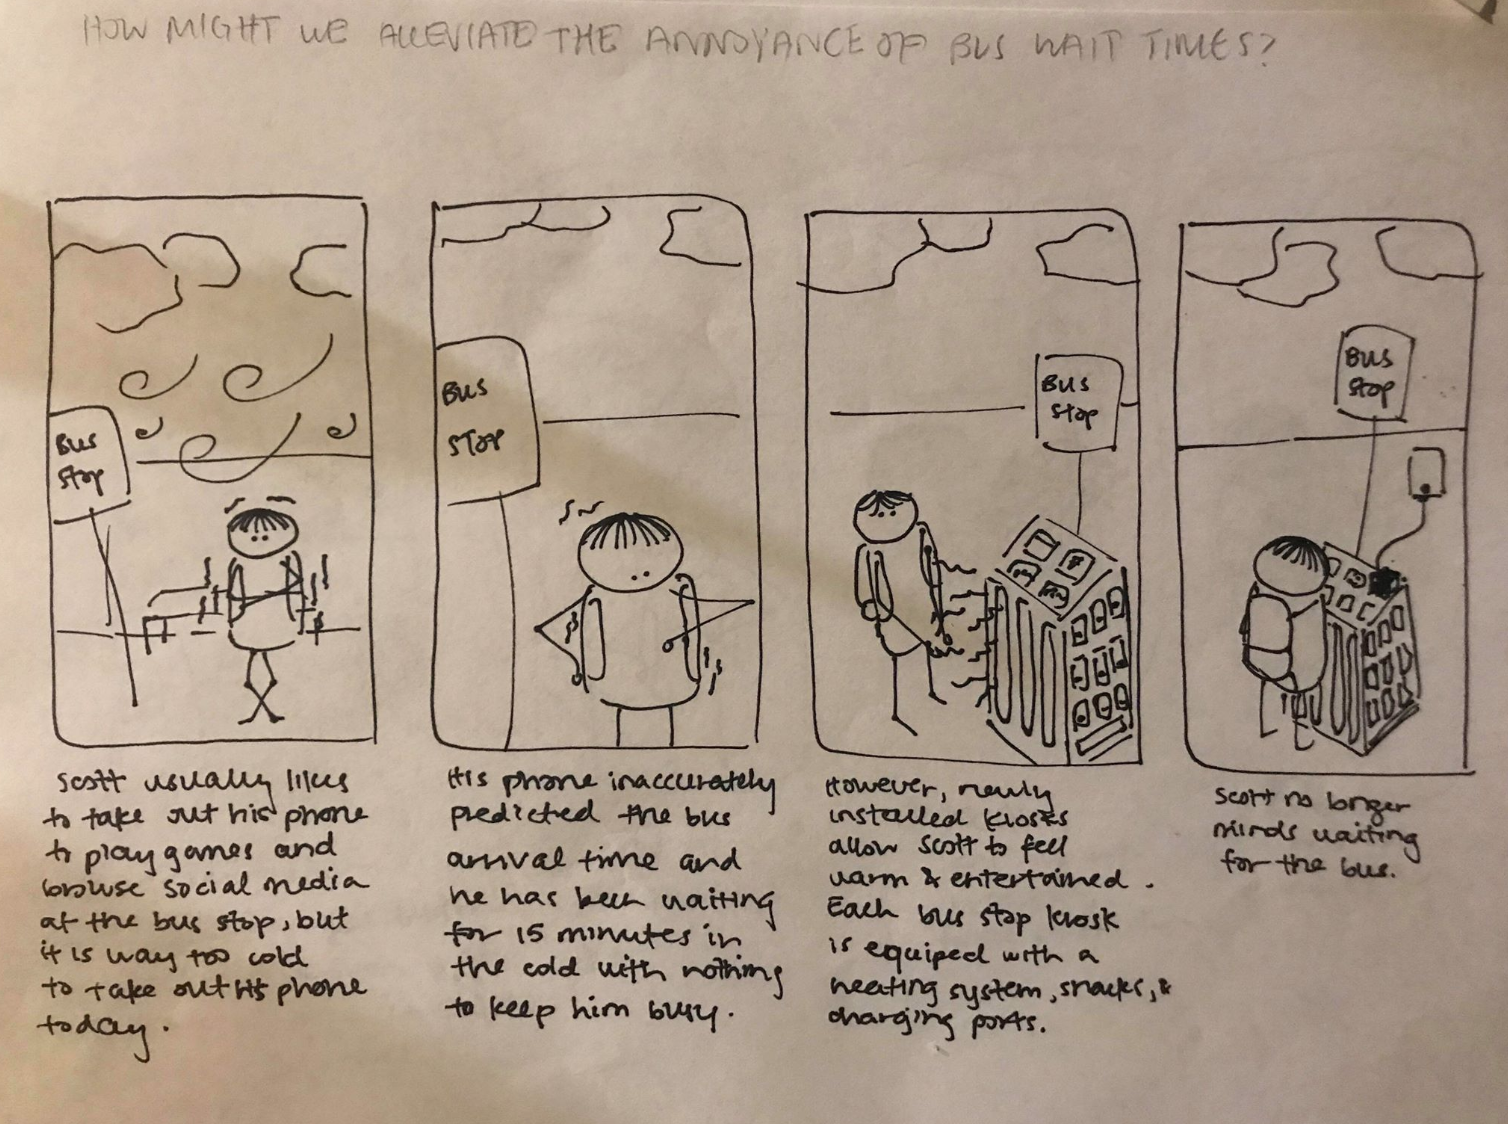 HOW MIGHT WE ALLEVIATE THE ANNOYANCE OF BUS WAIT TIMES?
BUS
Stop
Scott usually likes
to take out his phone
to play games and
browse social media
at the bus stop, but
it is way too cold
to take out his phone
today.
BUS
STOP
His phone inaccurately
predicted the bus
arrival time and
he has been waiting
for 15 minutes in
the cold with nothing
to keep him busy.
BUS
Stop
However, newly
installed kiosks
allow Scott to feel
warm & entertained.
Each bus stop kiosk
is equiped with a
heating system, snacks, &
charging ports.
BUS
Stop
Scott no longer
minds waiting
for the bus.